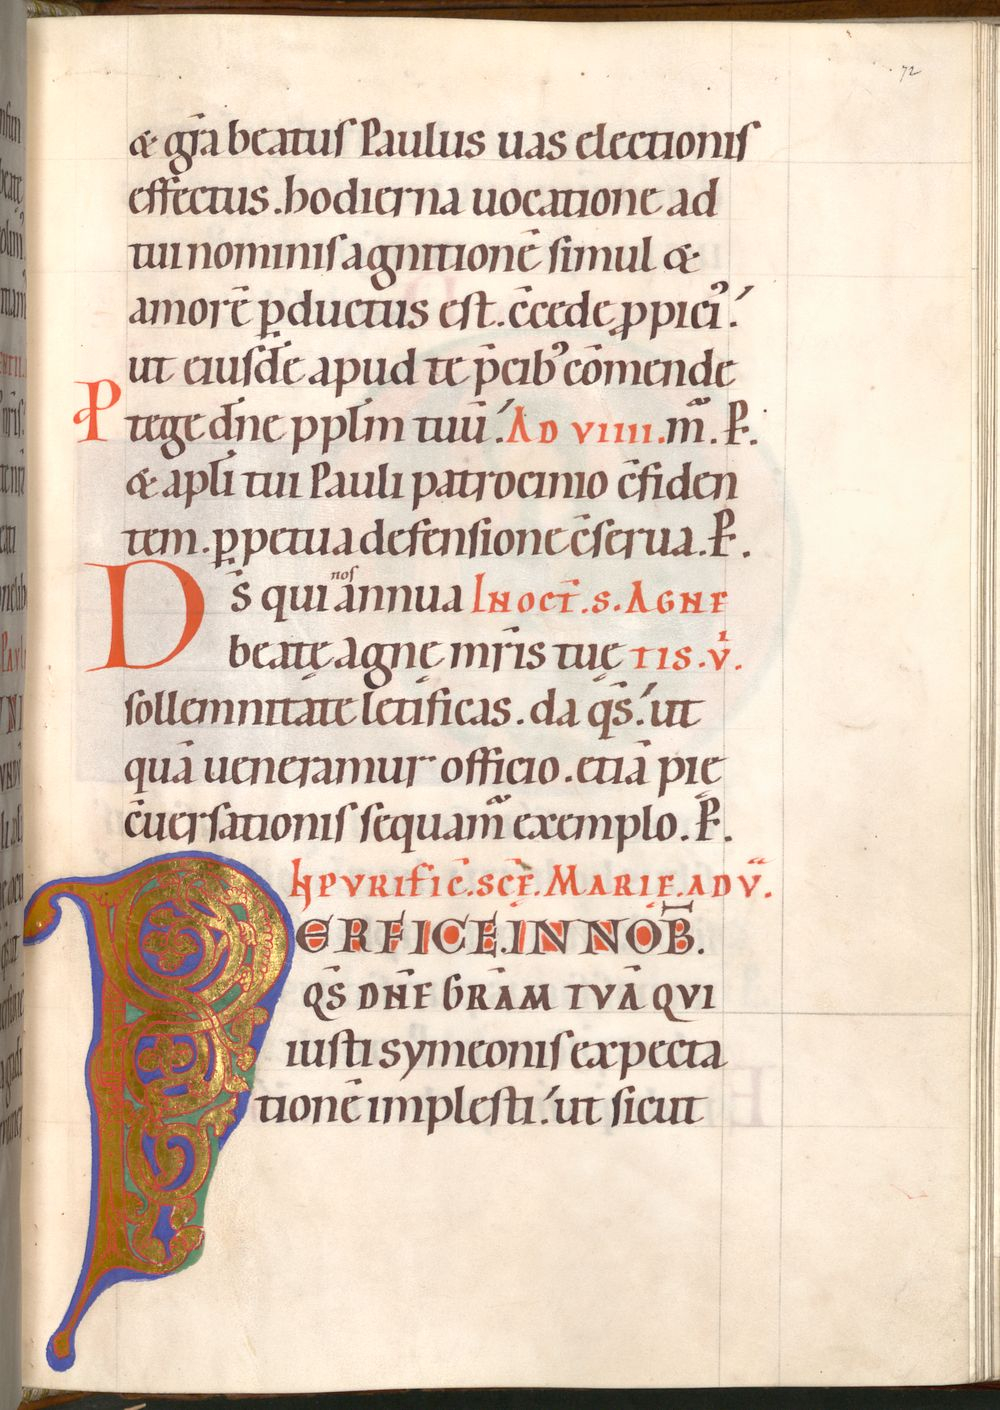 72
& gr̄a beatus Paulus uas electionis
effectus. hodierna uocatione ad
tui nominis agnitionē simul &
amorē ꝑductus est. c̄cede ꝓpiciꝰ.
ut eiusdē apud te p̄cibꝰ cōmende
Ptege dn̄e pplm̄ tuū. AD VIIII. m̄. P̄.
& apl̄i tui Pauli patrocinio c̄fiden
tem. ꝑpetua defensione c̄serua. P̄.
Ds̄ qui nos annua IN OCT̄. S. AGNE
beatę agnę mr̄is tuę TIS. V̄.
sollemnitate letificas. da qs̄. ut
quā ueneramur officio. etiā pię
c̄uersationis sequam̄ exemplo. P̄.
IN PVRIFIC̄. SCĒ. MARIĘ. AD V̄.
PERFICE. IN NOB̄.
QS̄ DN̄E GR̄AM TVĀ QVI
iusti symeonis expecta
tionē implesti. ut sicut